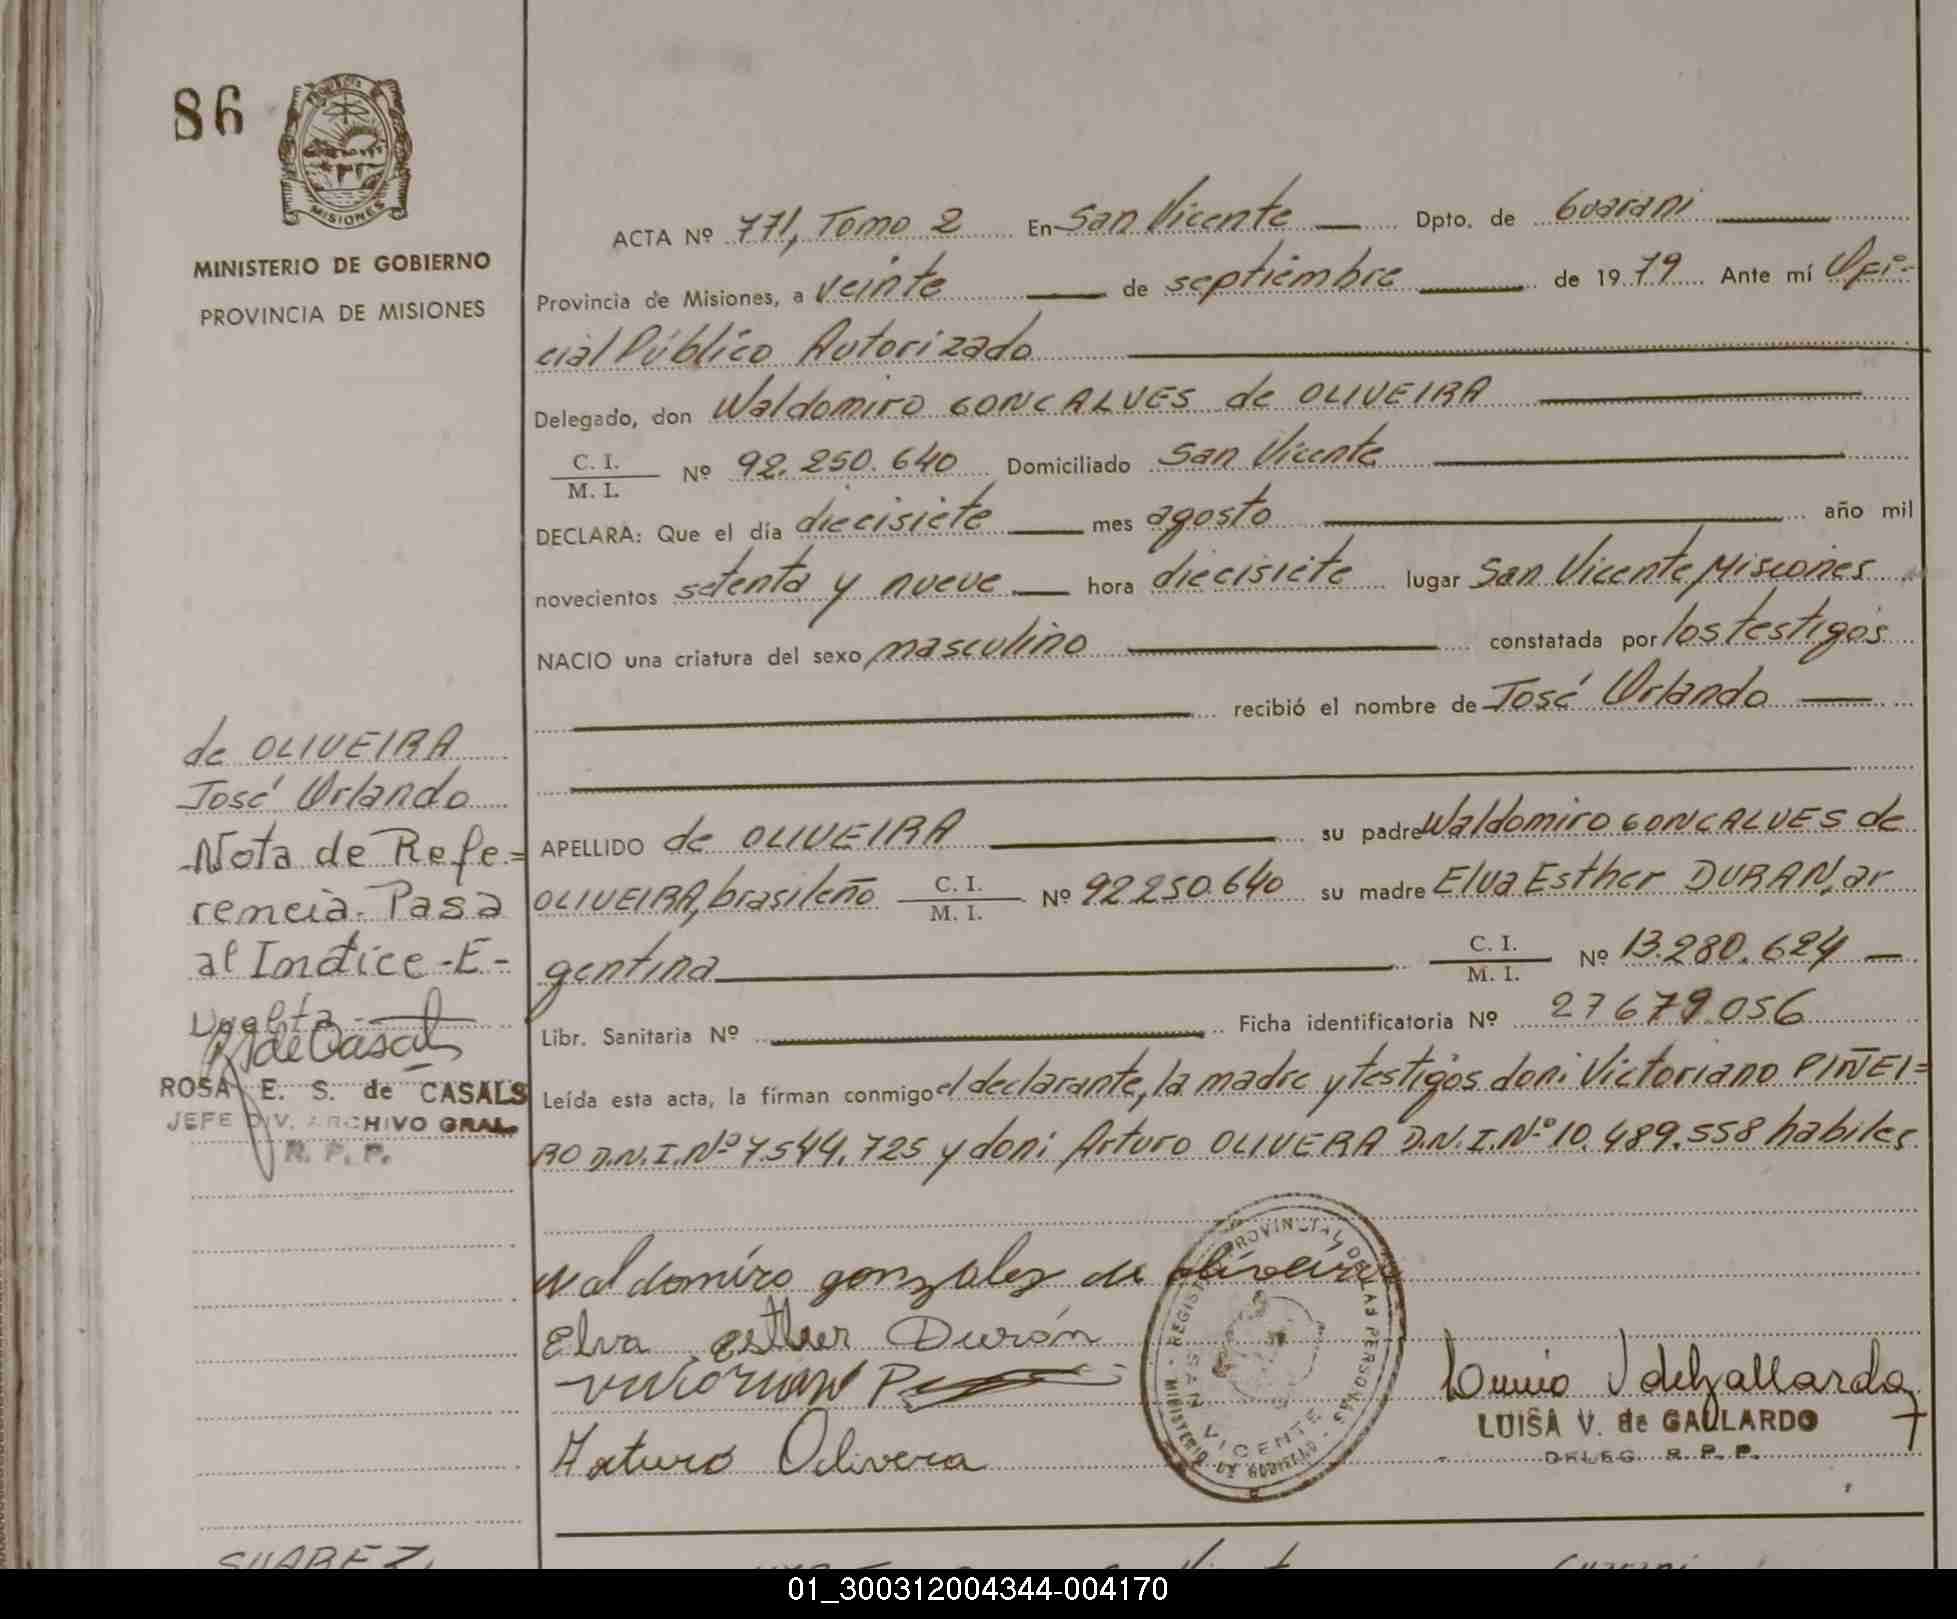 86
MISIONES
MINISTERIO DE GOBIERNO
PROVINCIA DE MISIONES
de OLIVEIRA
José Orlando
Nota de Refe=
rencia. Pasa
al Indice -E-
Vuelta
ROSA E. S. de CASALS
JEFE DIV. ARCHIVO GRAL.
R. P. P.
SUAREZ,
ACTA Nº 771, Tomo 2 En San Vicente Dpto. de Guarani
Provincia de Misiones, a veinte de septiembre de 1979 Ante mí Ofi-
cial Público Autorizado
Delegado, don Waldomiro GONCALVES de OLIVEIRA
C. I.
M. I. Nº 92.250.640 Domiciliado San Vicente
DECLARA: Que el día diecisiete mes agosto año mil
novecientos setenta y nueve hora diecisiete lugar San Vicente, Misiones
NACIO una criatura del sexo masculino constatada por los testigos
recibió el nombre de José Orlando
APELLIDO de OLIVEIRA su padre Waldomiro GONCALVES de
OLIVEIRA, brasileño C. I. M. I. Nº 92250.640 su madre Elva Esther DURAN, ar
gentina C. I. M. I. Nº 13.280.624
Libr. Sanitaria Nº Ficha identificatoria Nº 27679.056
Leída esta acta, la firman conmigo el declarante, la madre y testigos don: Victoriano PIÑEI=
RO D.N.I. Nº 7.544.725 y don: Arturo OLIVERA D.N.I. Nº 10.489.558 habiles
Waldomiro gonzalez de oliveira
Elva esther Durán
Arturo Olivera
REGISTRO PROVINCIAL DE LAS PERSONAS
MINISTERIO DE GOBIERNO
SAN VICENTE
LUISA V. de GALLARDO
DELEG. R. P. P.
01_300312004344-004170